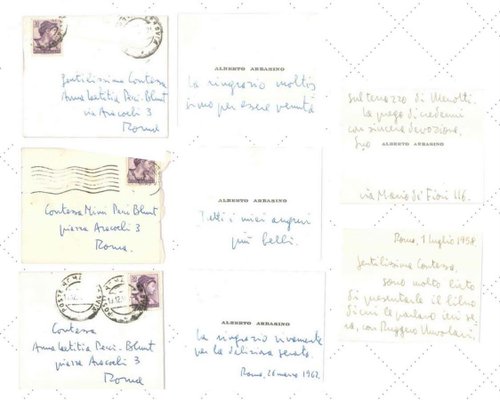 Gentilissima Contessa
Anna Laetitia Pecci-Blunt
via Aracoeli 3
Roma
ALBERTO ARBASINO
La ringrazio moltis
simo per essere venuta
sul terrazzo di Menotti.
La prego di credermi
con sincera devozione.
Suo ALBERTO ARBASINO
via Mario di Fiori 46.
Contessa Mimi Pecci Blunt
piazza Aracoeli 3
Roma.
ALBERTO ARBASINO
Tutti i miei auguri
più belli.
Roma, 1 luglio 1958
Gentilissima Contessa,
sono molto lieto
di presentarle il libro
di cui le parlavo ieri se
ra, con Ruggero
Contessa
Anna Laetitia Pecci-Blunt
piazza Aracoeli 3
Roma
ALBERTO ARBASINO
La ringrazio vivamente
per la deliziosa serata.
Roma, 26 marzo 1962